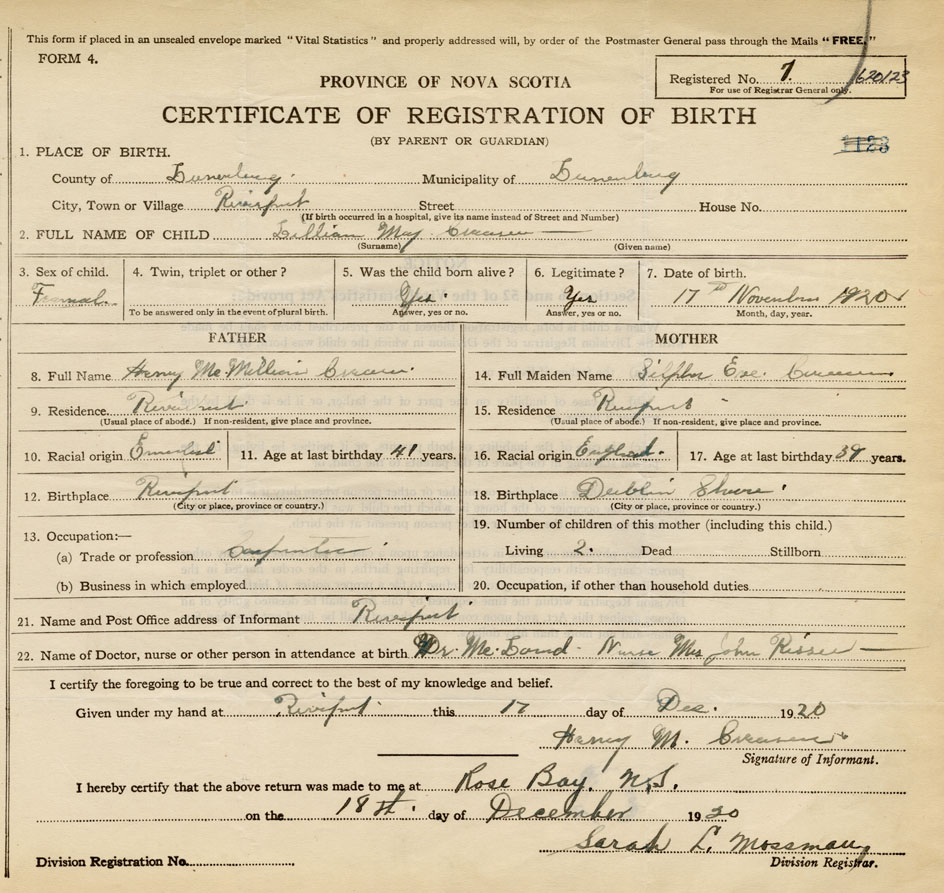 This form if placed in an unsealed envelope marked "Vital Statistics" and properly addressed will, by order of the Postmaster General pass through the Mails "FREE."
FORM 4.
PROVINCE OF NOVA SCOTIA
Registered No. 7 620123
For use of Registrar General only.
CERTIFICATE OF REGISTRATION OF BIRTH
(BY PARENT OR GUARDIAN)
1123
1. PLACE OF BIRTH.
County of Lunenburg. Municipality of Lunenburg
City, Town or Village Riverport Street House No.
(If birth occurred in a hospital, give its name instead of Street and Number)
2. FULL NAME OF CHILD Lillian May Creaser
(Surname) (Given name)
3. Sex of child. 4. Twin, triplet or other? 5. Was the child born alive? 6. Legitimate? 7. Date of birth.
Femal. Yes. Yes 17 November 1920
To be answered only in the event of plural birth. Answer, yes or no. Answer, yes or no. Month, day, year.
FATHER MOTHER
8. Full Name Henry Mc.Millian Creaser. 14. Full Maiden Name Eve Creaser
9. Residence. Riverport 15. Residence Riverport
(Usual place of abode.) If non-resident, give place and province. (Usual place of abode.) If non-resident, give place and province.
10. Racial origin 11. Age at last birthday 41 years. 16. Racial origin English. 17. Age at last birthday 39 years.
12. Birthplace Riverport 18. Birthplace Dublin Shore
(City or place, province or country.) (City or place, province or country.)
13. Occupation:— 19. Number of children of this mother (including this child.)
(a) Trade or profession Carpenter Living 2. Dead Stillborn
(b) Business in which employed 20. Occupation, if other than household duties
21. Name and Post Office address of Informant Riverport
22. Name of Doctor, nurse or other person in attendance at birth Dr. Nurse Mrs John
I certify the foregoing to be true and correct to the best of my knowledge and belief.
Given under my hand at Riverport this 17 day of Dec. 1920
Henry M. Creaser
Signature of Informant.
I hereby certify that the above return was made to me at Rose Bay. N.S.
on the 18th. day of December 1920
Sarah L. Mossman
Division Registration No. Division Registrar.